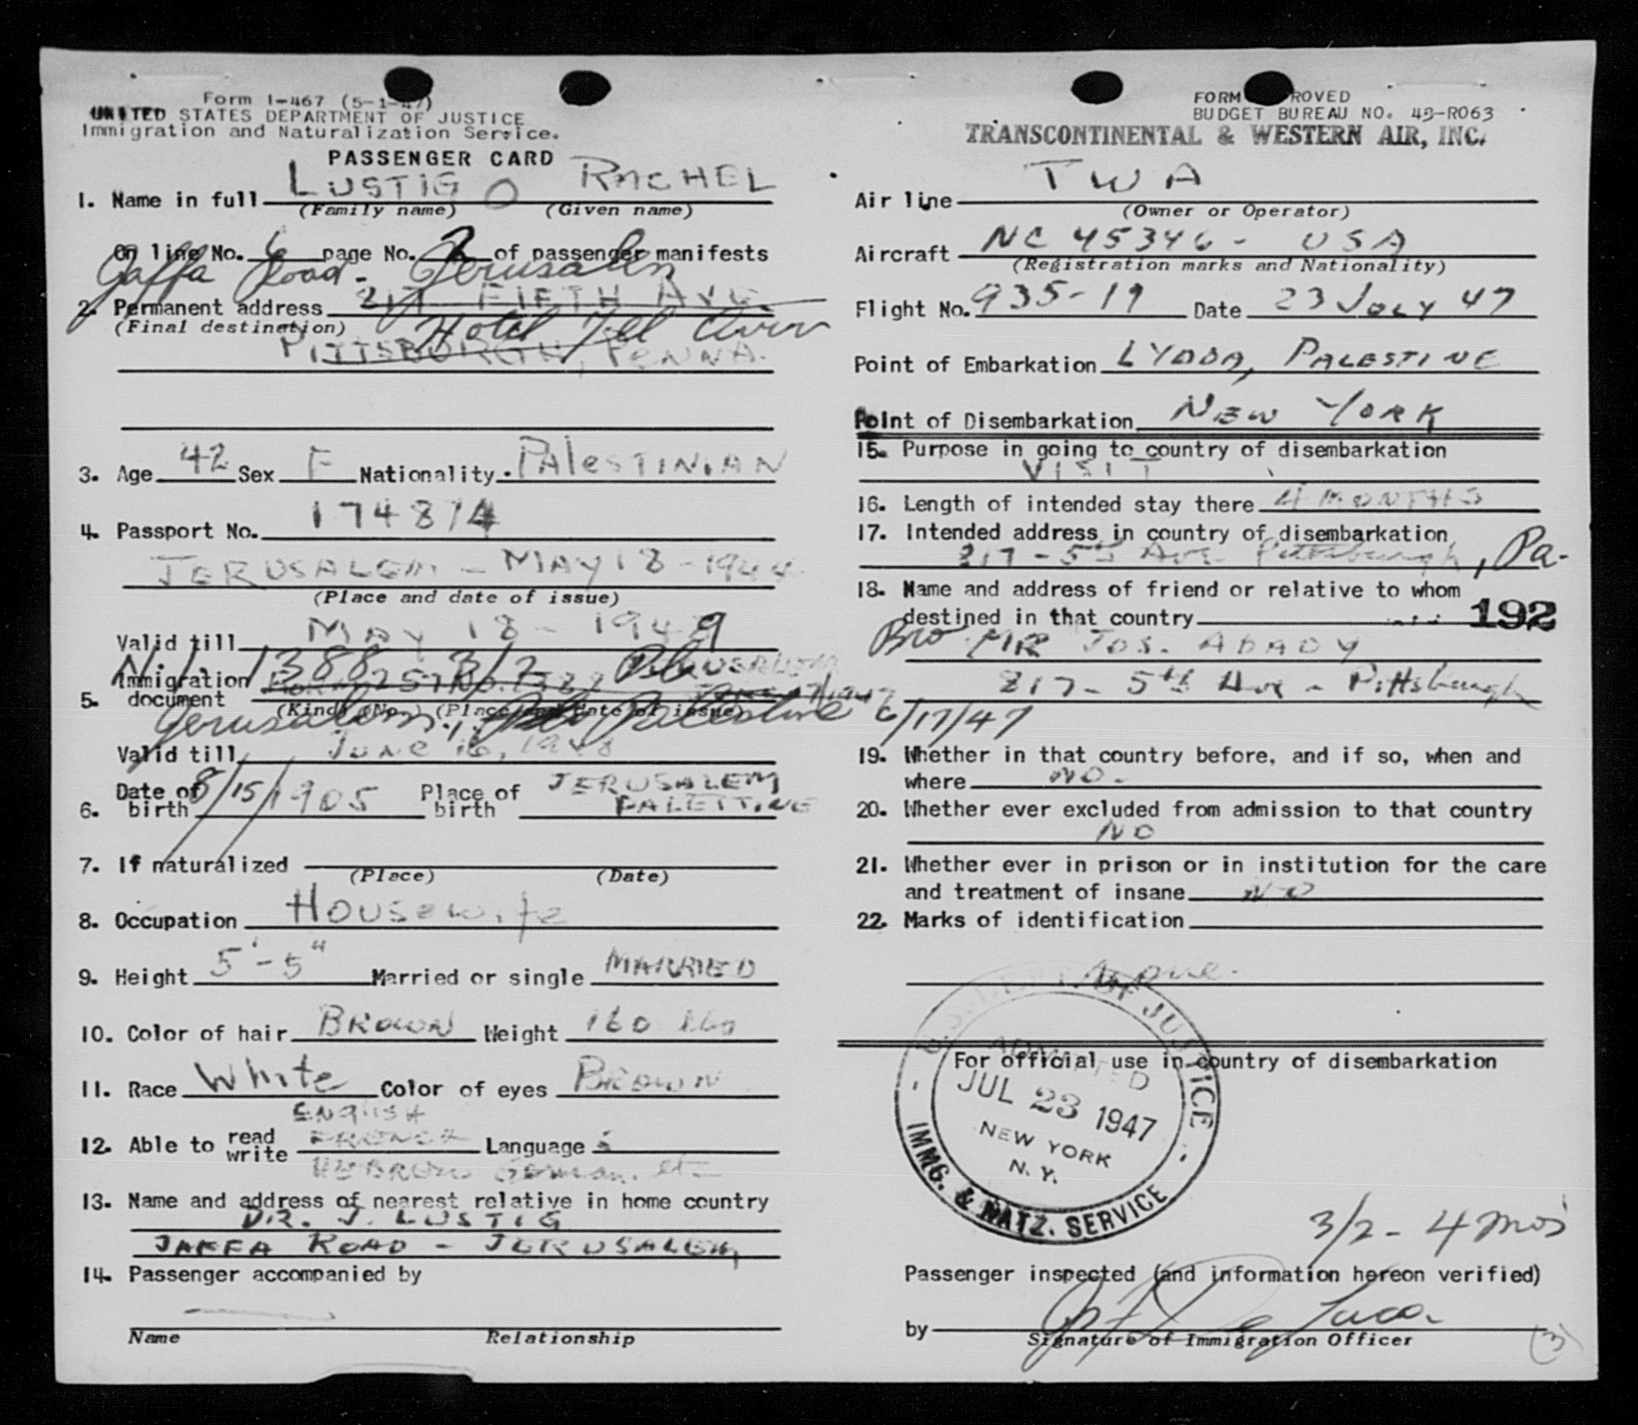 Form I-467 (5-1-47)
UNITED STATES DEPARTMENT OF JUSTICE
Immigration and Naturalization Service.
PASSENGER CARD
1. Name in full LUSTIG RACHEL
(Family name) (Given name)
On line No. 6 page No. 2 of passenger manifests
Jaffa Road - Jerusalem
2. Permanent address 217 FIFTH AVE.
(Final destination) Hotel Tel Aviv
PITTSBURGH, PENNA.
3. Age 42 Sex F Nationality PALESTINIAN
4. Passport No. 174874
JERUSALEM - MAY 18 - 1944
(Place and date of issue)
Valid till MAY 18 - 1949
N.I. 1388 3/2
5. Immigration document
(Kind) (No.) (Place and date of issue)
Jerusalem, Palestine 6/17/47
Valid till JUNE 16, 1948
6. Date of birth 8/15/1905 Place of birth JERUSALEM PALESTINE
7. If naturalized
(Place) (Date)
8. Occupation HOUSEWIFE
9. Height 5'-5" Married or single MARRIED
10. Color of hair BROWN Weight 160 lbs
11. Race White Color of eyes BROWN
ENGLISH
12. Able to read write FRENCH Language
HEBREW German, etc
13. Name and address of nearest relative in home country
DR. J. LUSTIG
JAFFA ROAD - JERUSALEM
14. Passenger accompanied by
Name Relationship
FORM APPROVED
BUDGET BUREAU NO. 43-R063
TRANSCONTINENTAL & WESTERN AIR, INC.
Air line TWA
(Owner or Operator)
Aircraft NC 45346 - USA
(Registration marks and Nationality)
Flight No. 935-19 Date 23 JULY 47
Point of Embarkation LYDDA, PALESTINE
Point of Disembarkation NEW YORK
15. Purpose in going to country of disembarkation
VISIT
16. Length of intended stay there 4 MONTHS
17. Intended address in country of disembarkation
817 - 5th Ave Pittsburgh, Pa.
18. Name and address of friend or relative to whom
destined in that country 192
Bro MR JOS. ABADY
817 - 5th Ave - Pittsburgh
19. Whether in that country before, and if so, when and
where NO.
20. Whether ever excluded from admission to that country
NO
21. Whether ever in prison or in institution for the care
and treatment of insane NO
22. Marks of identification
None.
For official use in country of disembarkation
U.S. DEPT. OF JUSTICE
ADMITTED
JUL 23 1947
NEW YORK
N.Y.
IMMG. & NATZ. SERVICE
3/2 - 4 mos
Passenger inspected (and information hereon verified)
by
Signature of Immigration Officer
(3)